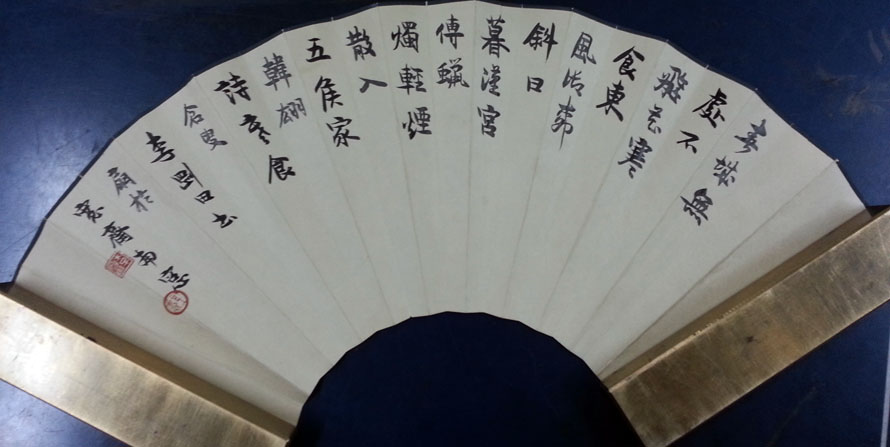 春城無
處不
飛花寒
食東
風御柳
斜日
暮漢宮
傳蠟
燭輕煙
散入
五侯家
韓翃
詩寒食
李剛田書
扇於
寬齋南窗